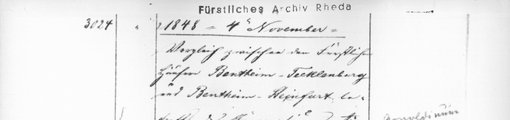 Fürstliches Archiv Rheda
3024
1848 - 4t November -
Vergleich zwischen den Fürstlichen
Häusern Bentheim-Tecklenburg
und Bentheim-Steinfurt be-